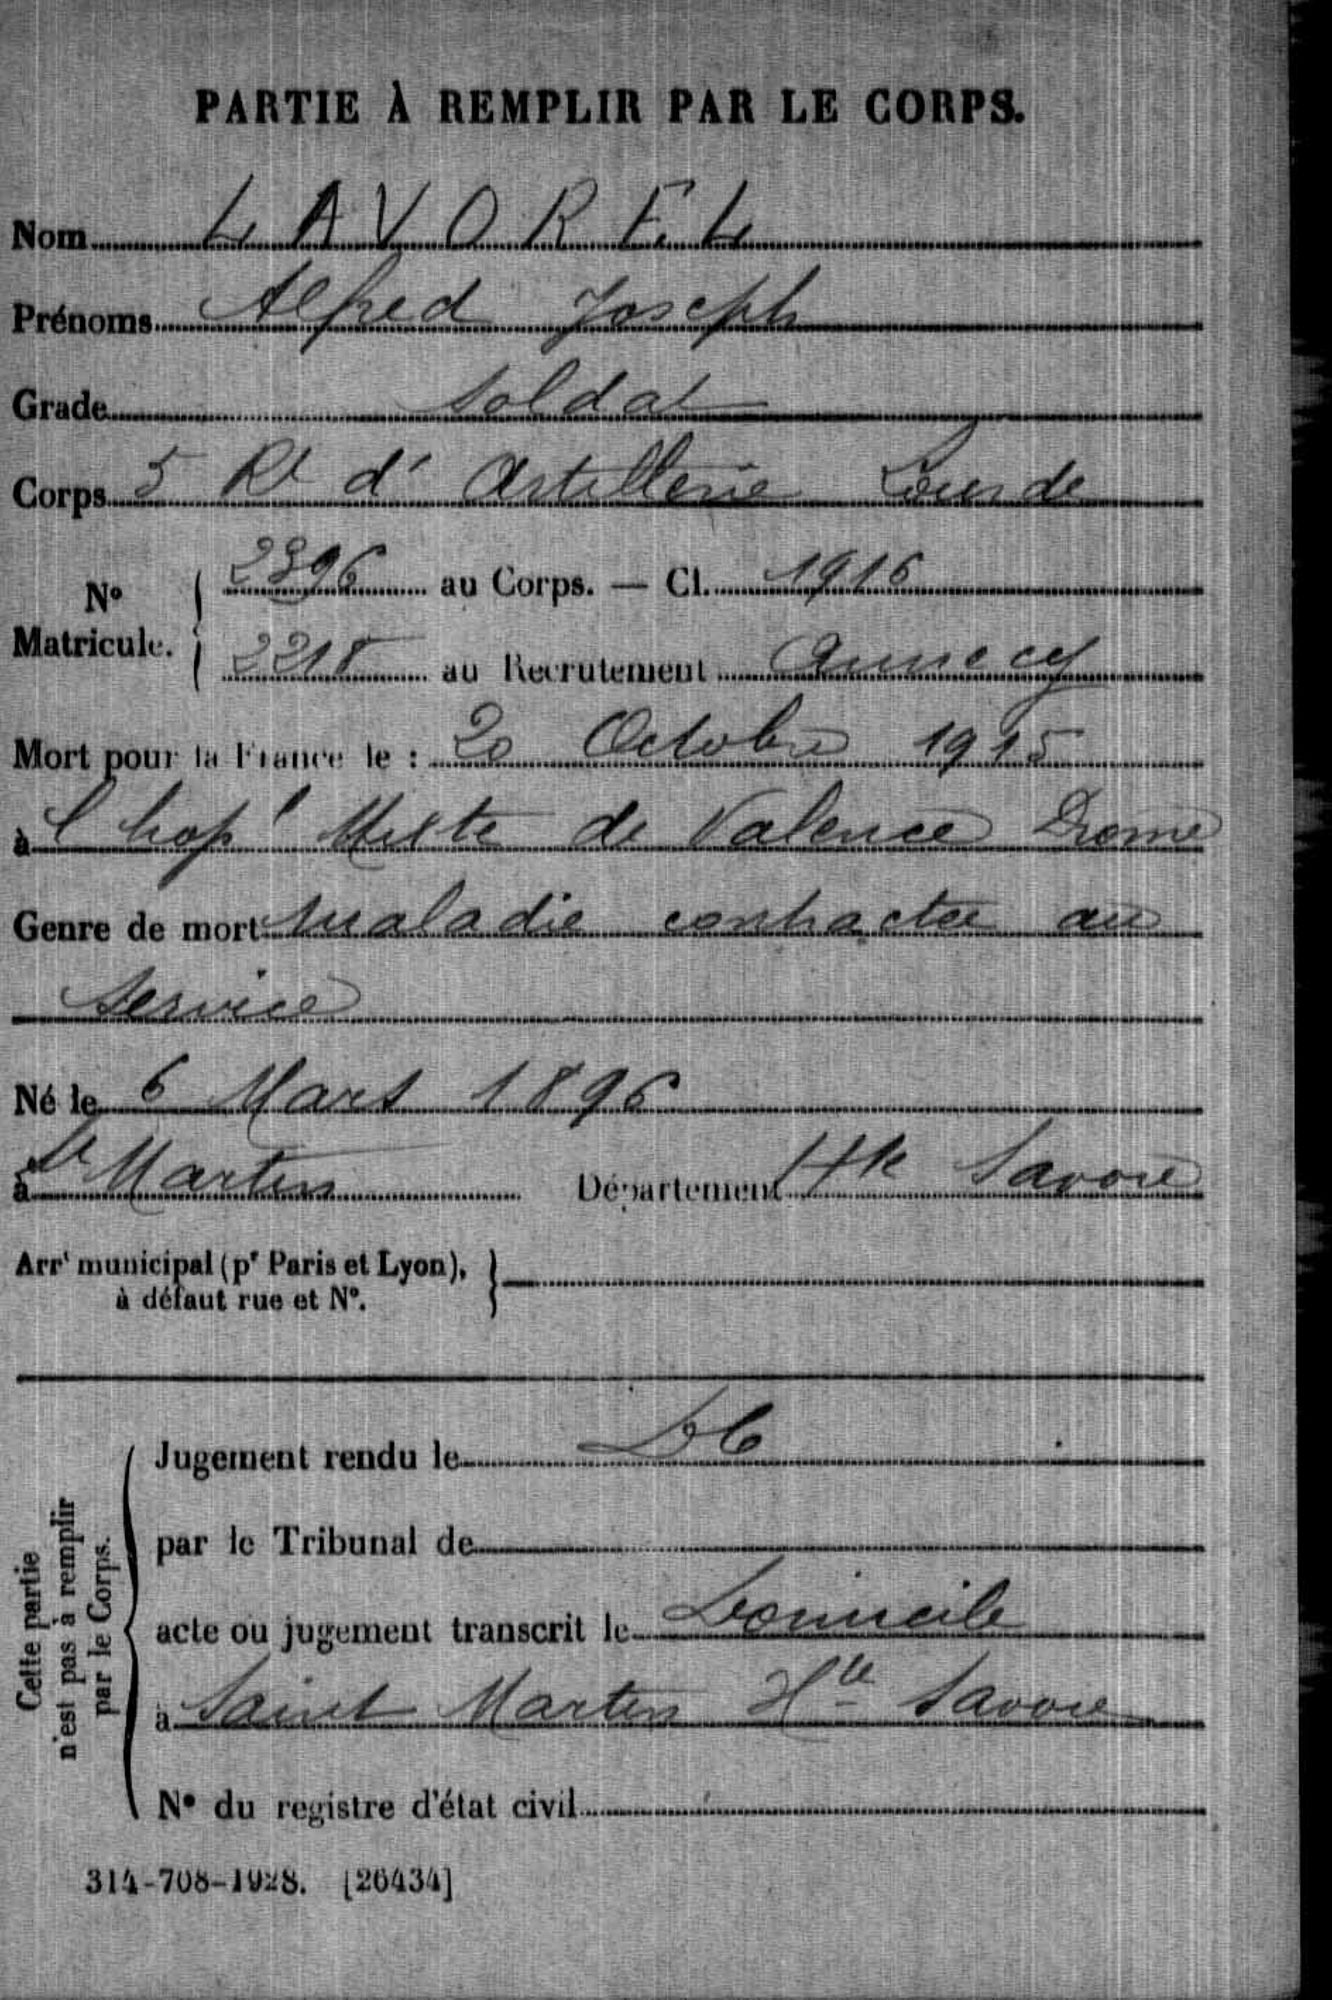 PARTIE À REMPLIR PAR LE CORPS.
Nom LAVOREL
Prénoms Alfred Joseph
Grade Soldat
Corps 5 Rt d'Artillerie Lourde
No Matricule. 2396 au Corps. — Cl. 1916
2218 au Recrutement Annecy
Mort pour la France le : 20 Octobre 1915
à l'hop l Mixte de Valence Drome
Genre de mort Maladie contractée au
Service
Né le 6 Mars 1896
à St Martin Département Hte Savoie
Arrt municipal (pr Paris et Lyon),
à défaut rue et No.
Cette partie
n'est pas à remplir
par le Corps.
Jugement rendu le
par le Tribunal de
acte ou jugement transcrit le Domicile
à Saint Martin Hte Savoie
No du registre d'état civil
314-708-1928. [26434]